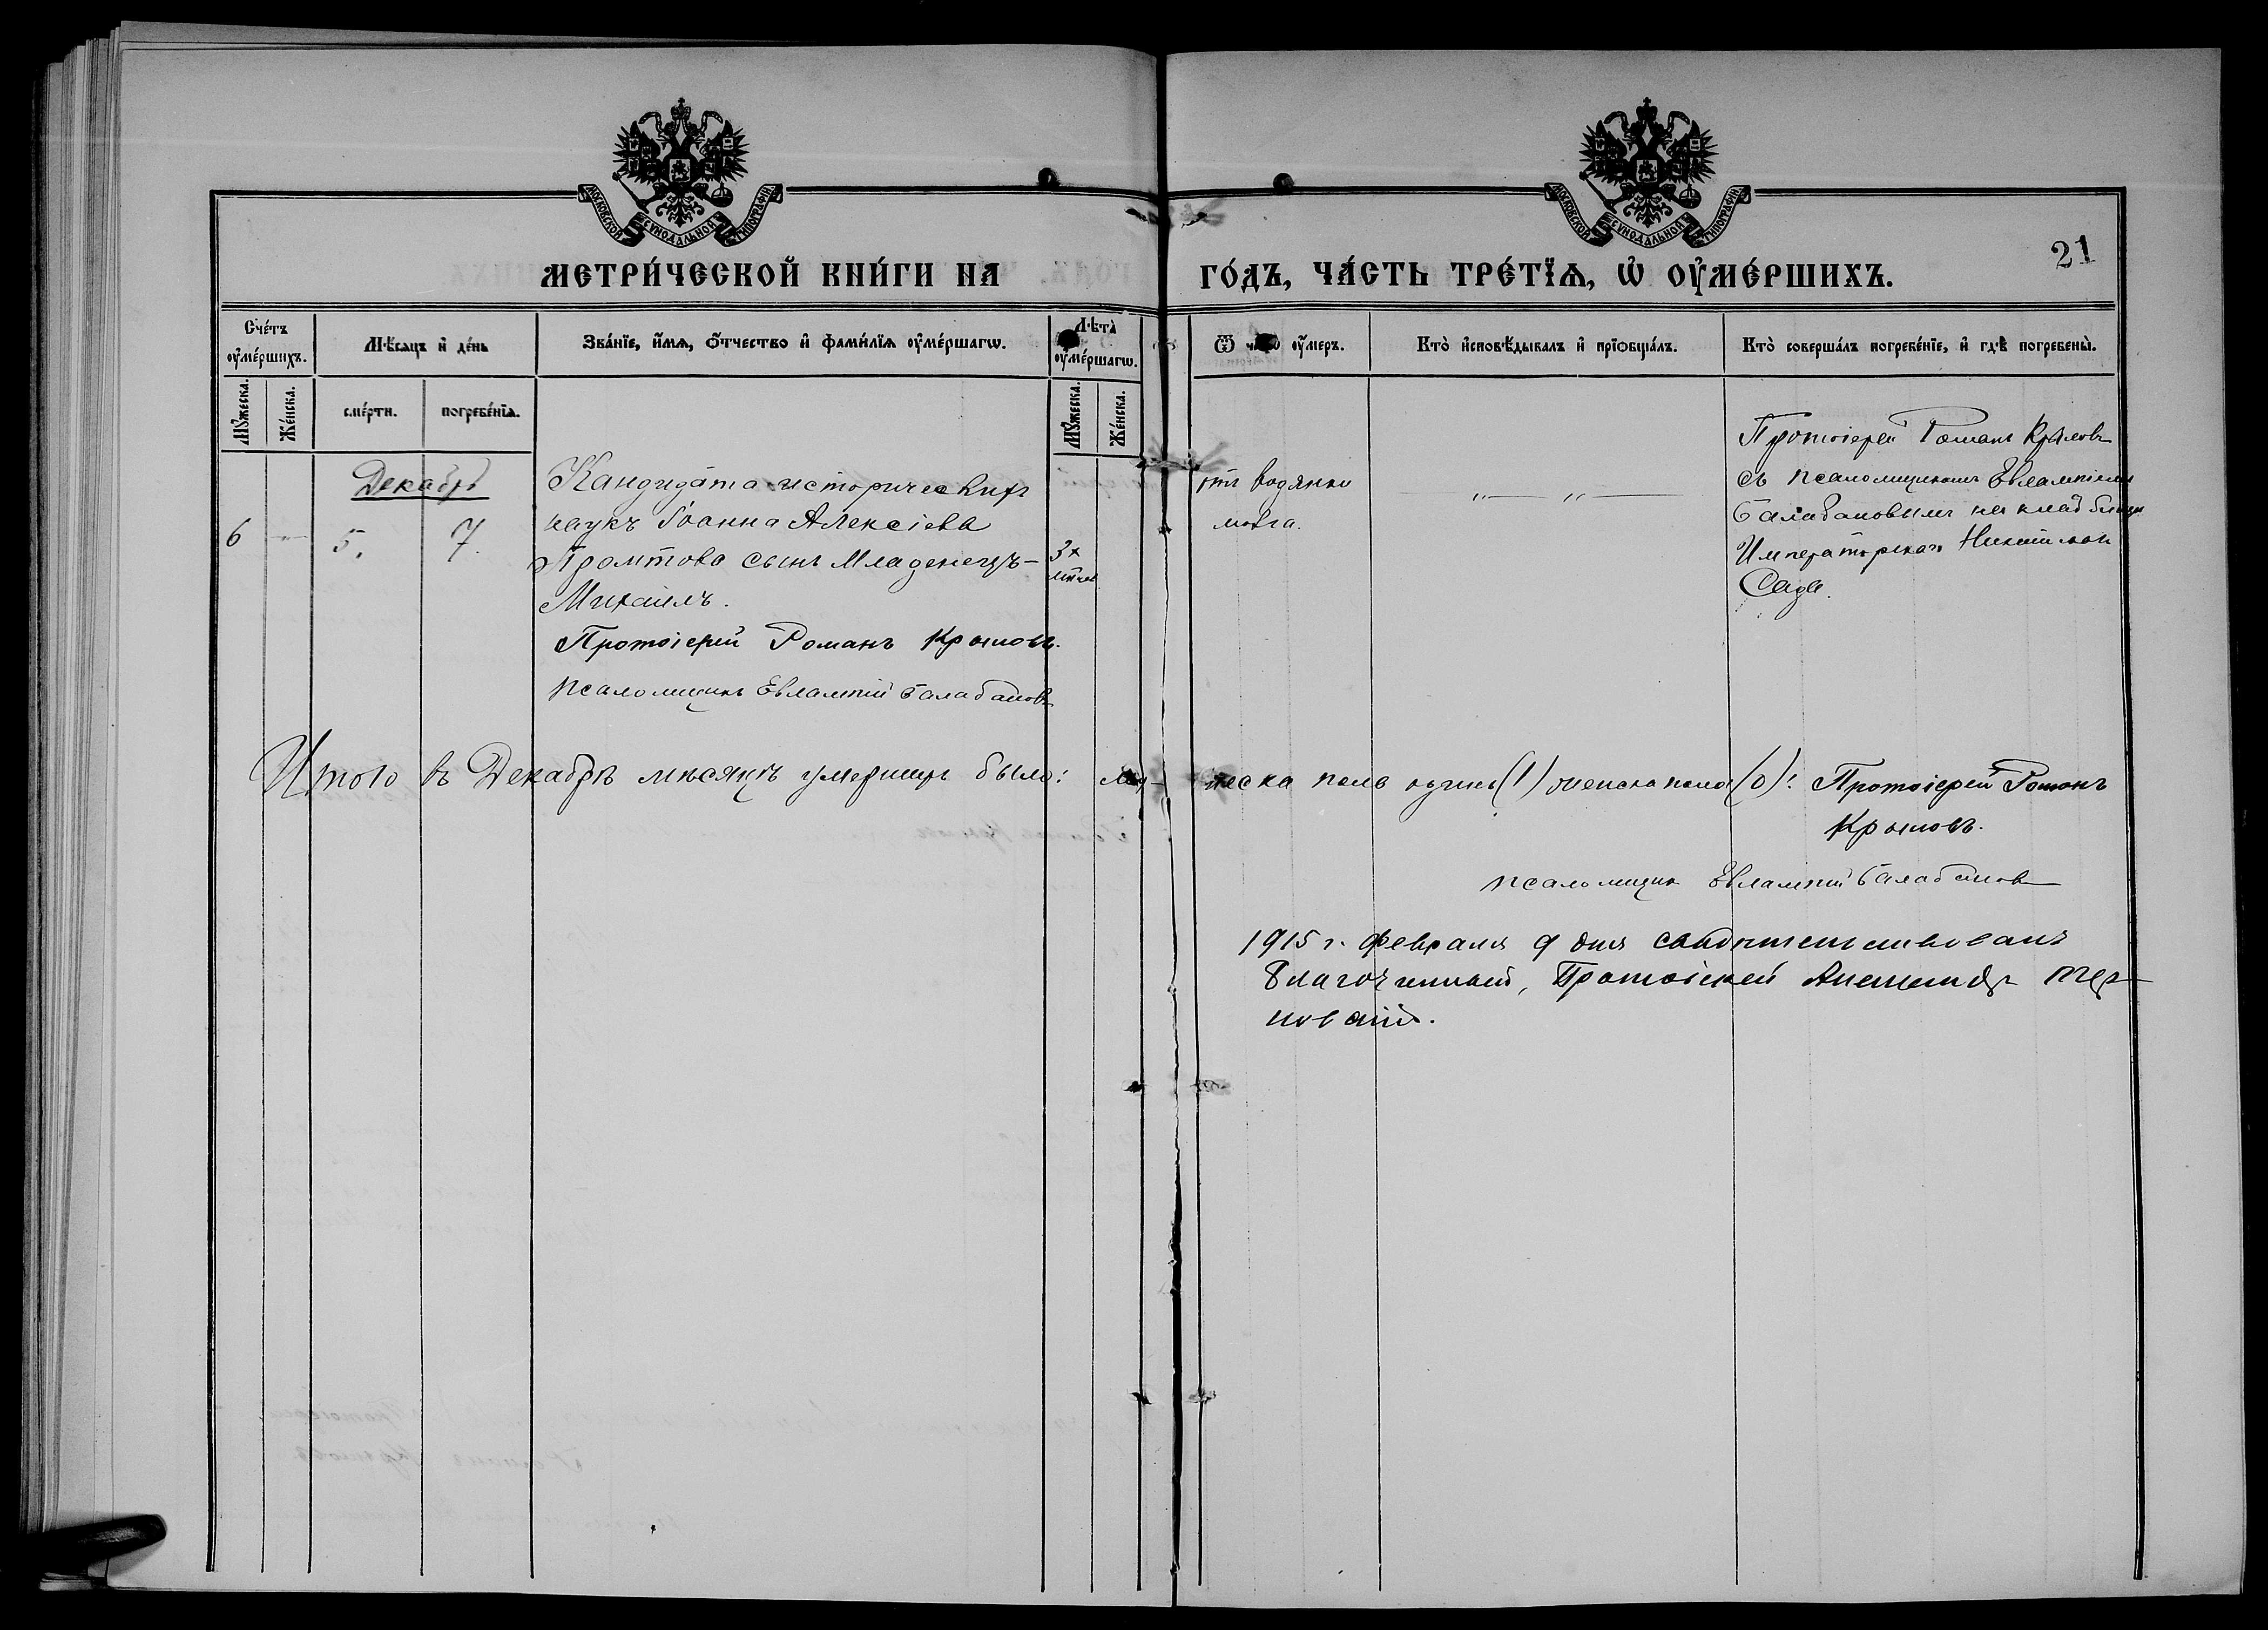 МОСКОВСКОЙ СѴНОДАЛЬНОЙ ТИПОГРАФІИ
МОСКОВСКОЙ СѴНОДАЛЬНОЙ ТИПОГРАФІИ
21
МЕТРИ́ЧЕСКОЙ КНИ́ГИ НА ГО́ДЪ, ЧА́СТЬ ТРЕ́ТЇѦ, Ѡ҆ ОУ҆МЕ́РШИХЪ.
Сче́тъ оу҆ме́ршихъ.
Мꙋ́жеска.
Же́нска.
Мѣ́сѧцъ и҆ де́нь
сме́рти.
погребе́нїѧ.
Зва́нїе, и҆́мѧ, о҆́тчество и҆ фами́лїѧ оу҆ме́ршагѡ.
Лѣ́та оу҆ме́ршагѡ.
Мꙋ́жеска.
Же́нска.
Ѿ чегѡ̀ оу҆́меръ.
Кто̀ и҆сповѣ́дывалъ и҆ прїѡбща́лъ.
Кто̀ соверша́лъ погребе́нїе, и҆ гдѣ̀ погребены̀.
Декабрь
6 — 5. 7.
Кандидата историческихъ
наукъ Іоанна Алексіева
Промтова сынъ Младенецъ-
Михаилъ.
3х
лѣтъ
отъ водянки
мозга.
„ — „ —
Протоіерей Романъ Крыловъ
съ псаломщикомъ Евлампіемъ
Балабановымъ на кладбищѣ
Императорскаго Никитскаго
Сада.
Протоіерей Романъ Крыловъ.
псаломщикъ Евлампій Балабановъ
Итого въ Декабрѣ мѣсяцѣ умершихъ было: муж-
жеска пола одинъ (1) женска пола (0): Протоіерей Романъ
Крыловъ.
псаломщикъ Евлампій Балабановъ
1915 г. февраля 9 дня свидѣтельствовалъ
Благочинный, Протоіерей Александръ Тер-
новскій.